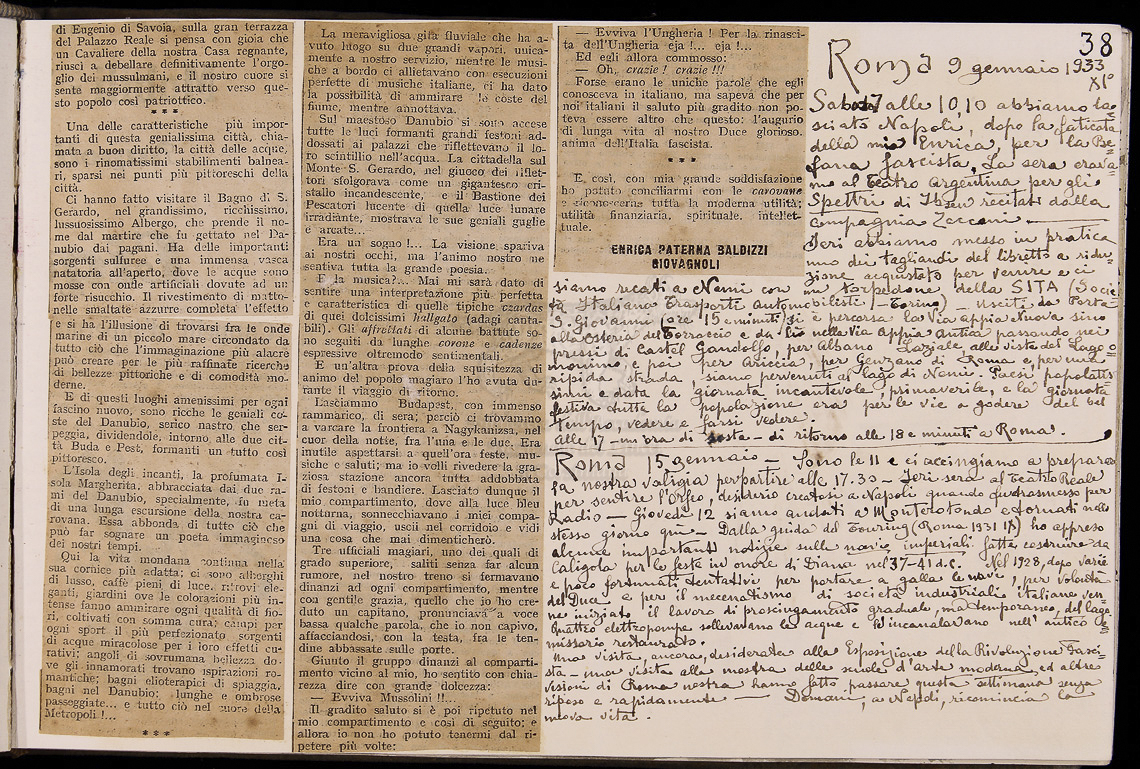 di Eugenio di Savoia, sulla gran terrazza
del Palazzo Reale si pensa con gioia che
un Cavaliere della nostra Casa regnante,
riuscì a debellare definitivamente l'orgo-
glio dei mussulmani, e il nostro cuore si
sente maggiormente attratto verso que-
sto popolo così patriottico.
* * *
Una delle caratteristiche più impor-
tanti di questa genialissima città, chia-
mata a buon diritto, la città delle acque,
sono i rinomatissimi stabilimenti balnea-
ri, sparsi nei punti più pittoreschi della
città.
Ci hanno fatto visitare il Bagno di S.
Gerardo, nel grandissimo, ricchissimo,
lussuosissimo Albergo, che prende il no-
me dal martire che fu gettato nel Da-
nubio dai pagani. Ha delle importanti
sorgenti sulfuree e una immensa vasca
natatoria all'aperto, dove le acque sono
mosse con onde artificiali dovute ad un
forte risucchio. Il rivestimento di matto-
nelle smaltate azzurre completa l'effetto
e si ha l'illusione di trovarsi fra le onde
marine di un piccolo mare circondato da
tutto ciò che l'immaginazione più alacre
può creare per le più raffinate ricerche
di bellezze pittoriche e di comodità mo-
derne.
E di questi luoghi amenissimi per ogni
fascino nuovo, sono ricche le geniali co-
ste del Danubio, serico nastro che ser-
peggia, dividendole, intorno alle due cit-
tà Buda e Pest, formanti un tutto così
pittoresco.
L'Isola degli incanti, la profumata I-
sola Margherita, abbracciata dai due ra-
mi del Danubio, specialmente, fu meta
di una lunga escursione della nostra ca-
rovana. Essa abbonda di tutto ciò che
può far sognare un poeta immaginoso
dei nostri tempi.
Qui la vita mondana continua nella
sua cornice più adatta; ci sono alberghi
di lusso, caffè pieni di luce, ritrovi ele-
ganti, giardini ove le colorazioni più in-
tense fanno ammirare ogni qualità di fio-
ri, coltivati con somma cura; campi per
ogni sport il più perfezionato sorgenti
di acque miracolose per i loro effetti cu-
rativi; angoli di sovrumana bellezza do-
ve gli innamorati trovano ispirazioni ro-
mantiche; bagni elioterapici di spiaggia,
bagni nel Danubio; lunghe e ombrose
passeggiate... e tutto ciò nel cuore della
Metropoli !...
* * *
La meravigliosa gita fluviale che ha a-
vuto luogo su due grandi vapori, unica-
mente a nostro servizio, mentre le musi-
che a bordo ci allietavano con esecuzioni
perfette di musiche italiane, ci ha dato
la possibilità di ammirare le coste del
fiume, mentre annottava.
Sul maestoso Danubio si sono accese
tutte le luci formanti grandi festoni ad-
dossati ai palazzi che riflettevano il lo-
ro scintillio nell'acqua. La cittadella sul
Monte S. Gerardo, nel giuoco dei riflet-
tori sfolgorava come un gigantesco cri-
stallo incandescente, e il Bastione dei
Pescatori lucente di quella luce lunare
irradiante, mostrava le sue geniali guglie
e arcate...
Era un sogno !... La visione spariva
ai nostri occhi, ma l'animo nostro ne
sentiva tutta la grande poesia.
E la musica? Mai mi sarà dato di
sentire una interpretazione più perfetta
e caratteristica di quelle tipiche czardas
di quei dolcissimi hallgato (adagi canta-
bili). Gli affrettati di alcune battute so-
no seguiti da lunghe corone e cadenze
espressive oltremodo sentimentali.
E un'altra prova della squisitezza di
animo del popolo magiaro l'ho avuta du-
rante il viaggio di ritorno.
Lasciammo Budapest, con immenso
rammarico, di sera; perciò ci trovammo
a varcare la frontiera a Nagykanizsa, nel
cuor della notte, fra l'una e le due. Era
inutile aspettarsi a quell'ora feste, mu-
siche e saluti; ma io volli rivedere la gra-
ziosa stazione ancora tutta addobbata
di festoni e bandiere. Lasciato dunque il
mio compartimento, dove alla luce bleu
notturna, sonnecchiavano i miei compa-
gni di viaggio, uscii nel corridoio e vidi
una cosa che mai dimenticherò.
Tre ufficiali magiari, uno dei quali di
grado superiore, saliti senza far alcun
rumore, nel nostro treno si fermavano
dinanzi ad ogni compartimento, mentre
con gentile grazia, quello che io ho cre-
duto un capitano, pronunciava a voce
bassa qualche parola, che io non capivo,
affacciandosi, con la testa, fra le ten-
dine abbassate sulle porte.
Giunto il gruppo dinanzi al comparti-
mento vicino al mio, ho sentito con chia-
rezza dire con grande dolcezza:
— Evviva Mussolini !!..
Il gradito saluto si è poi ripetuto nel
mio compartimento e così di seguito; e
allora io non ho potuto tenermi dal ri-
petere più volte:
— Evviva l'Ungheria ! Per la rinasci-
ta dell'Ungheria eja !... eja !...
Ed egli allora commosso:
— Oh, crazie ! crazie !!!
Forse erano le uniche parole che egli
conosceva in italiano, ma sapeva che per
noi italiani il saluto più gradito non po-
teva essere altro che questo: l'augurio
di lunga vita al nostro Duce glorioso,
anima dell'Italia fascista.
* * *
E, così, con mia grande soddisfazione
ho potuto conciliarmi con le carovane
e riconoscerne tutta la moderna utilità;
utilità finanziaria, spirituale, intellet-
tuale.
ENRICA PATERNA BALDIZZI
GIOVAGNOLI
38
Roma 9 gennaio 1933
XI°
Sabato 7 alle 10,10 abbiamo la-
sciato Napoli, dopo la faticata
della mia Enrica, per la Be-
fana fascista. La sera erava-
mo al Teatro Argentina per gli
Spettri di Ibsen recitati dalla
Compagnia Zacconi.
Ieri abbiamo messo in pratica
uno dei tagliandi del libretto a ridu-
zione acquistato per venire e ci
siamo recati a Nemi con un torpedone della SITA (Socie-
tà Italiana Trasporti Automobilisti - Torino) - Usciti da Porta
S. Giovanni (ore 15 e minuti) si è percorsa la via Appia Nuova sino
alla Osteria del Torraccio e da lì nella via Appia antica passando nei
pressi di Castel Gandolfo, per Albano Laziale alle viste del Lago o-
monimo e poi per Ariccia, per Genzano di Roma e per una
ripida strada, siamo pervenuti al lago di Nemi. Paesi popolatis-
simi e data la giornata incantevole, primaverile, e la giornata
festiva tutta la popolazione era per le vie a godere del bel
tempo, vedere e farsi vedere.
Alle 17 - un'ora di sosta - di ritorno alle 18 e minuti a Roma.
Roma 15 gennaio - Sono le 11 e ci accingiamo a preparare
la nostra valigia per partire alle 17.30 - Ieri sera al Teatro Reale
per sentire l'Orfeo, desiderio creatosi a Napoli quando fu trasmesso per
Radio - Giovedì 12 siamo andati a Monterotondo e tornati nello
stesso giorno qui - Dalla guida del Touring (Roma 1931 IX) ho appreso
alcune importanti notizie sulle navi imperiali fatte costruire da
Caligola per le feste in onore di Diana nel 37-41 d.C. Nel 1928, dopo varie
e poco fortunati tentativi per portare a galla le navi, per volontà
del Duce e per il mecenatismo di società industriali italiane ven-
ne iniziato il lavoro di prosciugamento graduale, ma temporaneo, del lago.
Quattro elettropompe sollevavano le acque e le incanalavano nell'antico e-
missario restaurato.
Una visita, ancora, desiderata alla Esposizione della Rivoluzione Fasci-
sta - una visita alla mostra delle scuole d'arte moderna ed altre
visioni di Roma nostra hanno fatto passare questa settimana senza
riposo e rapidamente - Domani, a Napoli, ricomincia la
nuova vita.